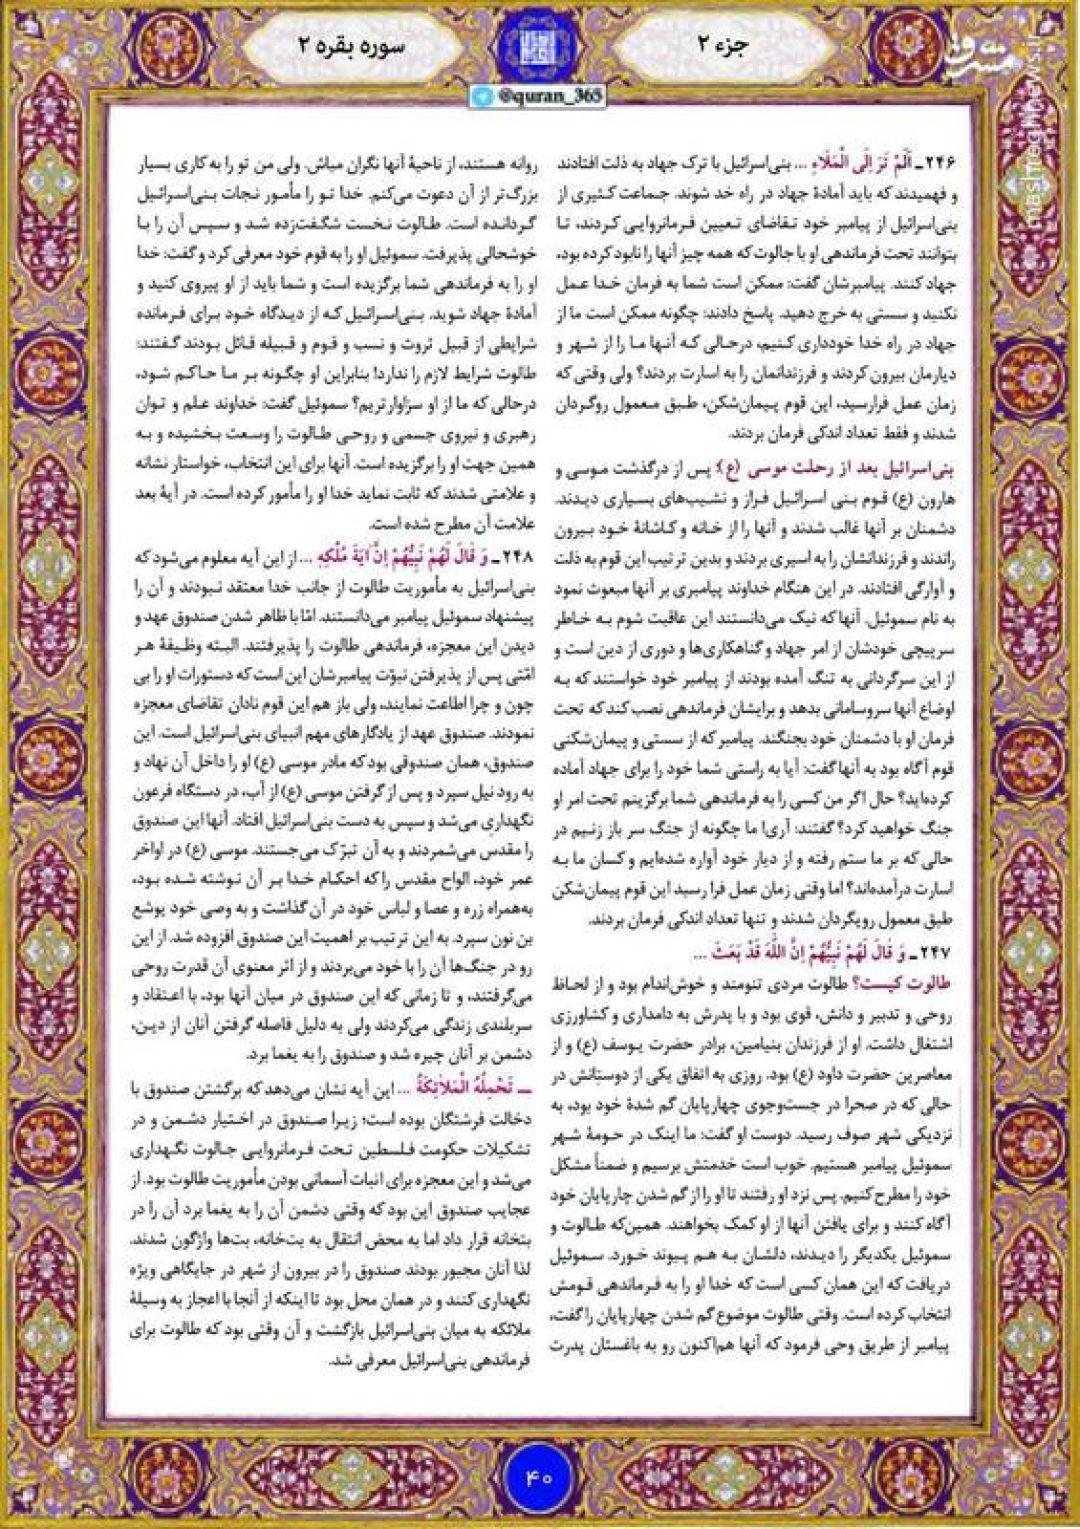 جزء ۲
سوره بقره ۲
@quran_365
مشرق
mashreghnews.ir
۲۴۶ـ أَلَمْ تَرَ إِلَی الْمَلَاءِ ... بنی‌اسرائیل با ترک جهاد به ذلت افتادند
و فهمیدند که باید آمادهٔ جهاد در راه خد شوند. جماعت کثیری از
بنی‌اسرائیل از پیامبر خود تقاضای تعیین فرمانروایی کردند، تا
بتوانند تحت فرماندهی او با جالوت که همه چیز آنها را نابود کرده بود،
جهاد کنند. پیامبرشان گفت: ممکن است شما به فرمان خدا عمل
نکنید و سستی به خرج دهید. پاسخ دادند: چگونه ممکن است ما از
جهاد در راه خدا خودداری کنیم، درحالی که آنها ما را از شهر و
دیارمان بیرون کردند و فرزندانمان را به اسارت بردند؟ ولی وقتی که
زمان عمل فرارسید، این قوم پیمان‌شکن، طبق معمول روگردان
شدند و فقط تعداد اندکی فرمان بردند.
بنی‌اسرائیل بعد از رحلت موسی (ع): پس از درگذشت موسی و
هارون (ع) قوم بنی اسرائیل فراز و نشیب‌های بسیاری دیدند.
دشمنان بر آنها غالب شدند و آنها را از خانه و کاشانهٔ خود بیرون
راندند و فرزندانشان را به اسیری بردند و بدین ترتیب این قوم به ذلت
و آوارگی افتادند. در این هنگام خداوند پیامبری بر آنها مبعوث نمود
به نام سموئیل. آنها که نیک می‌دانستند این عاقبت شوم به خاطر
سرپیچی خودشان از امر جهاد و گناهکاری‌ها و دوری از دین است و
از این سرگردانی به تنگ آمده بودند از پیامبر خود خواستند که به
اوضاع آنها سروسامانی بدهد و برایشان فرماندهی نصب کند که تحت
فرمان او با دشمنان خود بجنگند. پیامبر که از سستی و پیمان‌شکنی
قوم آگاه بود به آنها گفت: آیا به راستی شما خود را برای جهاد آماده
کرده‌اید؟ حال اگر من کسی را به فرماندهی شما برگزینم تحت امر او
جنگ خواهید کرد؟ گفتند: آری! ما چگونه از جنگ سر باز زنیم در
حالی که بر ما ستم رفته و از دیار خود آواره شده‌ایم و کسان ما به
اسارت درآمده‌اند؟ اما وقتی زمان عمل فرا رسید این قوم پیمان‌شکن
طبق معمول رویگردان شدند و تنها تعداد اندکی فرمان بردند.
۲۴۷ـ وَ قَالَ لَهُمْ نَبِیُّهُمْ إِنَّ اللهَ قَدْ بَعَثَ ...
طالوت کیست؟ طالوت مردی تنومند و خوش‌اندام بود و از لحاظ
روحی و تدبیر و دانش، قوی بود و با پدرش به دامداری و کشاورزی
اشتغال داشت. او از فرزندان بنیامین، برادر حضرت یوسف (ع) و از
معاصرین حضرت داود (ع) بود. روزی به اتفاق یکی از دوستانش در
حالی که در صحرا در جست‌وجوی چهارپایان گم شدهٔ خود بود، به
نزدیکی شهر صوف رسید. دوست او گفت: ما اینک در حومهٔ شهر
سموئیل پیامبر هستیم. خوب است خدمتش برسیم و ضمناً مشکل
خود را مطرح کنیم. پس نزد او رفتند تا او را از گم شدن چارپایان خود
آگاه کنند و برای یافتن آنها از او کمک بخواهند. همین‌که طالوت و
سموئیل یکدیگر را دیدند، دلشان به هم پیوند خورد. سموئیل
دریافت که این همان کسی است که خدا او را به فرماندهی قومش
انتخاب کرده است. وقتی طالوت موضوع گم شدن چهارپایان را گفت،
پیامبر از طریق وحی فرمود که آنها هم‌اکنون رو به باغستان پدرت
روانه هستند، از ناحیهٔ آنها نگران مباش. ولی من تو را به کاری بسیار
بزرگ‌تر از آن دعوت می‌کنم. خدا تو را مأمور نجات بنی‌اسرائیل
گردانده است. طالوت نخست شگفت‌زده شد و سپس آن را با
خوشحالی پذیرفت. سموئیل او را به قوم خود معرفی کرد و گفت: خدا
او را به فرماندهی شما برگزیده است و شما باید از او پیروی کنید و
آمادهٔ جهاد شوید. بنی‌اسرائیل که از دیدگاه خود برای فرمانده
شرایطی از قبیل ثروت و نسب و قوم و قبیله قائل بودند گفتند:
طالوت شرایط لازم را ندارد! بنابراین او چگونه بر ما حاکم شود،
درحالی که ما از او سزاوارتریم؟ سموئیل گفت: خداوند علم و توان
رهبری و نیروی جسمی و روحی طالوت را وسعت بخشیده و به
همین جهت او را برگزیده است. آنها برای این انتخاب، خواستار نشانه
و علامتی شدند که ثابت نماید خدا او را مأمور کرده است. در آیهٔ بعد
علامت آن مطرح شده است.
۲۴۸ـ وَ قَالَ لَهُمْ نَبِیُّهُمْ إِنَّ آیَةَ مُلْکِهِ ... از این آیه معلوم می‌شود که
بنی‌اسرائیل به مأموریت طالوت از جانب خدا معتقد نبودند و آن را
پیشنهاد سموئیل پیامبر می‌دانستند. امّا با ظاهر شدن صندوق عهد و
دیدن این معجزه، فرماندهی طالوت را پذیرفتند. البته وظیفهٔ هر
امّتی پس از پذیرفتن نبوّت پیامبرشان این است که دستورات او را بی
چون و چرا اطاعت نمایند، ولی باز هم این قوم نادان تقاضای معجزه
نمودند. صندوق عهد از یادگارهای مهم انبیای بنی‌اسرائیل است. این
صندوق، همان صندوقی بود که مادر موسی (ع) او را داخل آن نهاد و
به رود نیل سپرد و پس از گرفتن موسی (ع) از آب، در دستگاه فرعون
نگهداری می‌شد و سپس به دست بنی‌اسرائیل افتاد. آنها این صندوق
را مقدس می‌شمردند و به آن تبرّک می‌جستند. موسی (ع) در اواخر
عمر خود، الواح مقدس را که احکام خدا بر آن نوشته شده بود،
به‌همراه زره و عصا و لباس خود در آن گذاشت و به وصی خود یوشع
بن نون سپرد. به این ترتیب بر اهمیت این صندوق افزوده شد. از این
رو در جنگ‌ها آن را با خود می‌بردند و از اثر معنوی آن قدرت روحی
می‌گرفتند، و تا زمانی که این صندوق در میان آنها بود، با اعتقاد و
سربلندی زندگی می‌کردند ولی به دلیل فاصله گرفتن آنان از دین،
دشمن بر آنان چیره شد و صندوق را به یغما برد.
ــ تَحْمِلُهُ الْمَلَائِکَةُ ... این آیه نشان می‌دهد که برگشتن صندوق با
دخالت فرشتگان بوده است؛ زیرا صندوق در اختیار دشمن و در
تشکیلات حکومت فلسطین تحت فرمانروایی جالوت نگهداری
می‌شد و این معجزه برای اثبات آسمانی بودن مأموریت طالوت بود. از
عجایب صندوق این بود که وقتی دشمن آن را به یغما برد آن را در
بتخانه قرار داد اما به محض انتقال به بت‌خانه، بت‌ها واژگون شدند.
لذا آنان مجبور بودند صندوق را در بیرون از شهر در جایگاهی ویژه
نگهداری کنند و در همان محل بود تا اینکه از آنجا با اعجاز به وسیلهٔ
ملائکه به میان بنی‌اسرائیل بازگشت و آن وقتی بود که طالوت برای
فرماندهی بنی‌اسرائیل معرفی شد.
۴۰